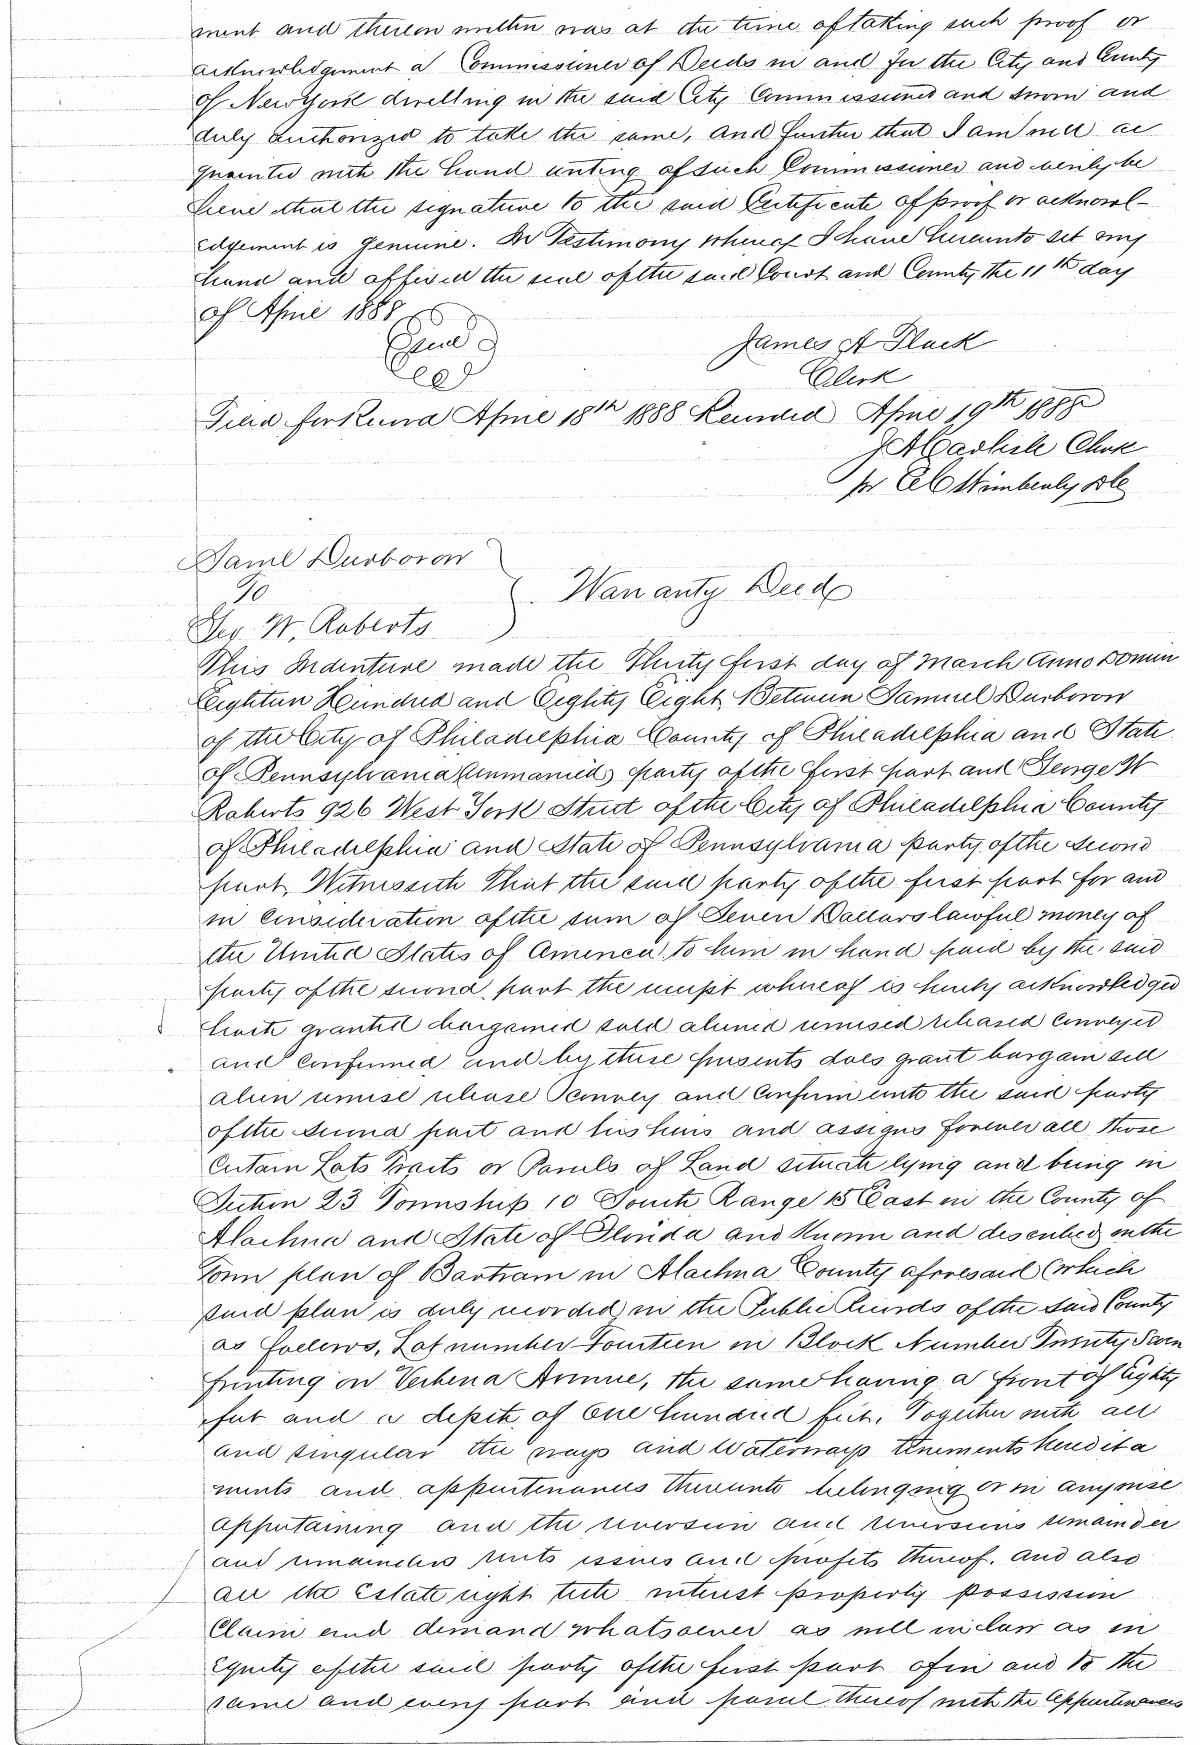 ment and thereon written was at the time of taking such proof or
acknowledgement a Commissioner of Deeds in and for the City and County
of New York dwelling in the said City Commissioned and sworn and
duly authorized to take the same, and further that I am well ac
quainted with the hand writing of such Commissioner and verily be
lieve that the signature to the said Certificate of proof or acknowl-
edgement is genuine. In Testimony whereof I have hereunto set my
hand and affixed the seal of the said Court and County the 11th day
of April 1888
James A Flack
Clerk
Filed for Record April 18th 1888 Recorded April 19th 1888
J A Carlisle Clerk
pr C C Wimberly DC
Saml Durborow
To
Geo W. Roberts
Warranty Deed
This Indenture made the Thirty first day of March Anno Domin
Eighteen Hundred and Eighty Eight, Between Samuel Durborow
of the City of Philadelphia County of Philadelphia and State
of Pennsylvania (unmarried) party of the first part and George W
Roberts 926 West York Street of the City of Philadelphia County
of Philadelphia and State of Pennsylvania party of the second
part, Witnesseth That the said party of the first part for and
in consideration of the sum of Seven Dollars lawful money of
the United States of America to him in hand paid by the said
party of the second part the receipt whereof is hereby acknowledged
hath granted bargained sold aliened remised released conveyed
and confirmed and by these presents does grant bargain sell
alien remise release convey and confirm unto the said party
of the second part and his heirs and assigns forever all those
Certain Lots Tracts or Parcels of Land situate lying and being in
Section 23 Township 10 South Range 18 East in the County of
Alachua and State of Florida and known and described on the
Town plan of Bartram in Alachua County aforesaid (which
said plan is duly recorded) in the Public Records of the said County
as follows, Lot number Fourteen in Block Number Twenty Seven
fronting on Verbena Avenue, the same having a front of Eighty
feet and a depth of One hundred feet, Together with all
and singular the ways and Waterways tenements heredita
ments and appurtenances thereunto belonging or in anywise
appertaining and the reversion and reversions remainder
and remainders rents issues and profits thereof. And also
all the Estate right title interest property possession
Claim and demand whatsoever as well in law as in
Equity of the said party of the first part of in and to the
same and every part and parcel thereof with the Appurtenances